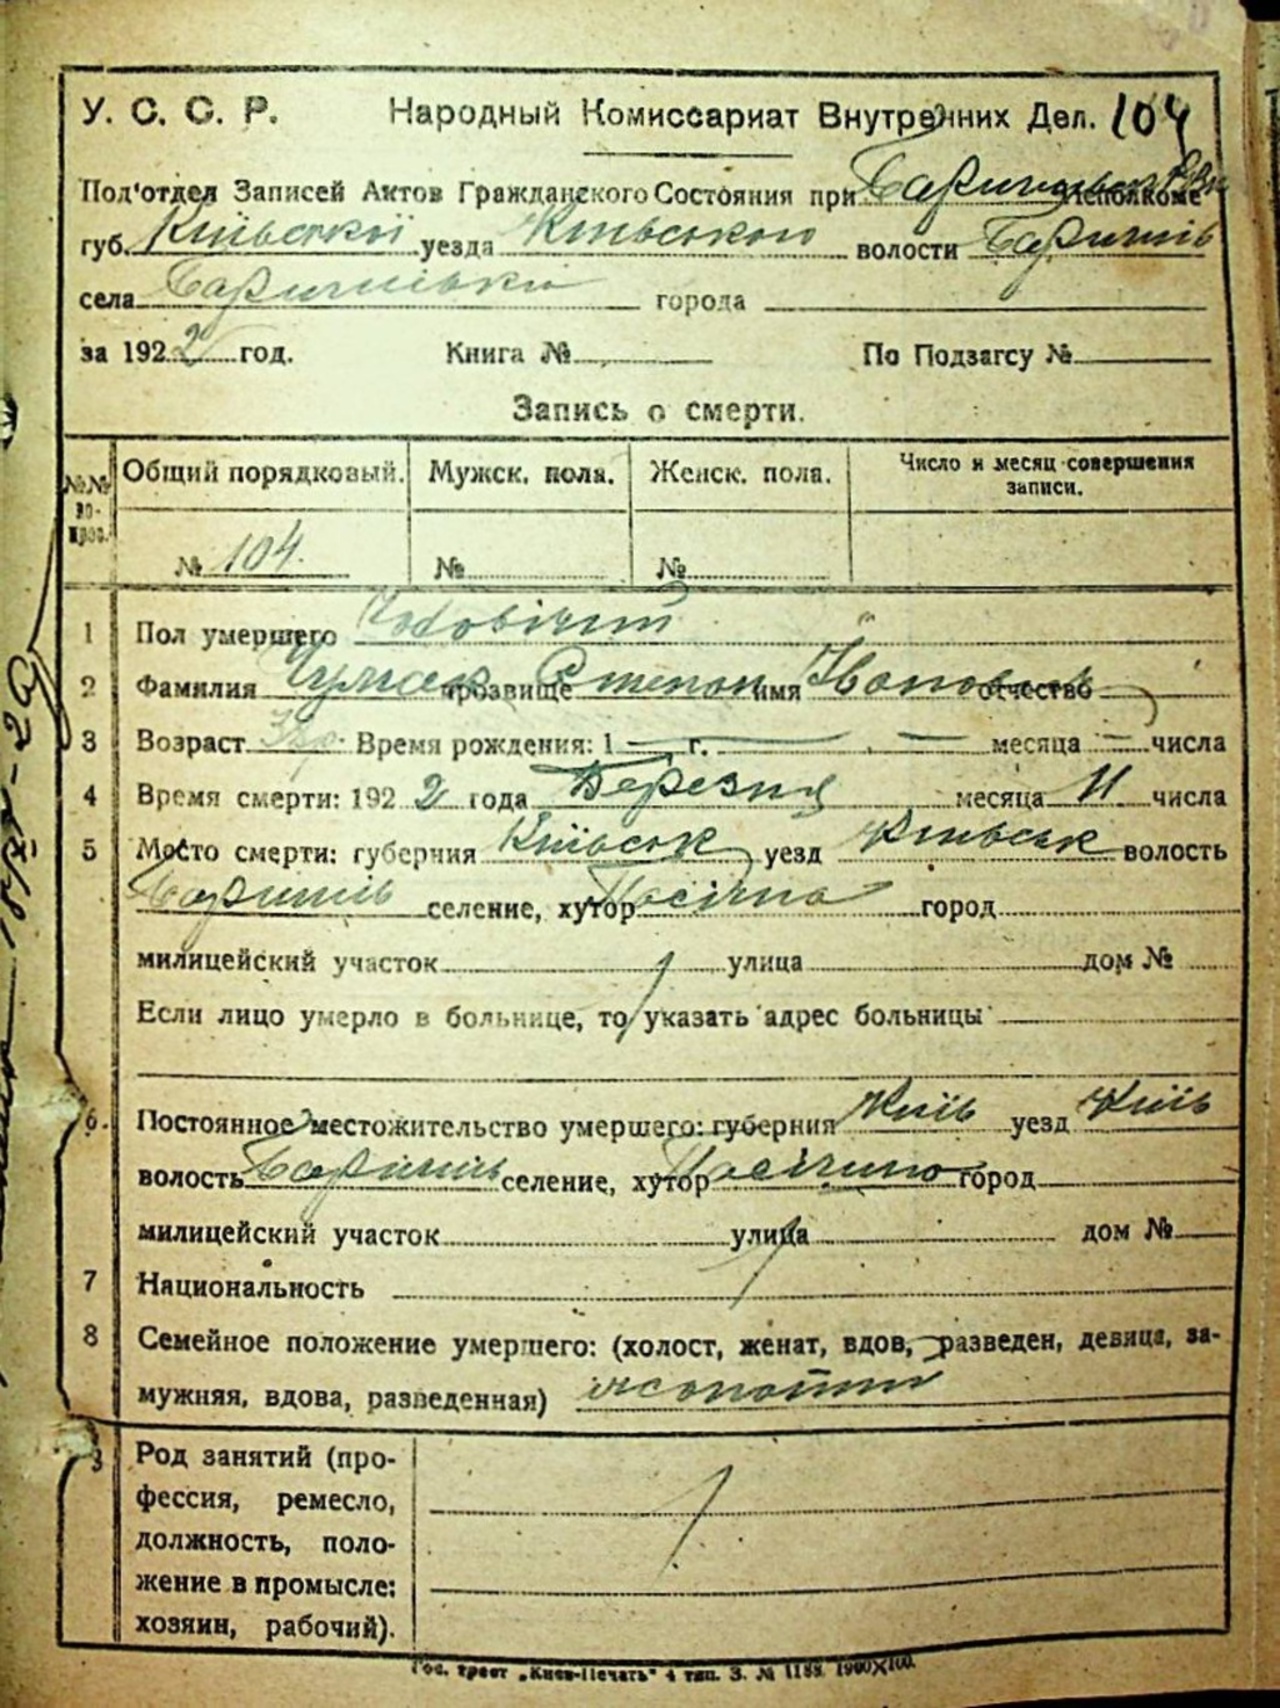 У. С. С. Р. Народный Комиссариат Внутренних Дел. 104
Под'отдел Записей Актов Гражданского Состояния при Исполкоме
губ. Київської уезда Київського волости Баришів
села Баришівки города
за 1922 год. Книга № По Подзагсу №
Запись о смерти.
№№ вопрос. Общий порядковый. Мужск. пола. Женск. пола. Число и месяц совершения записи.
№ 104. № №
1 Пол умершего Чоловічий
2 Фамилия Чумак прозвище Степан имя Іванович отчество
3 Возраст Время рождения: 1 — г. — — месяца — числа
4 Время смерти: 1922 года Березня месяца 11 числа
5 Место смерти: губерния Київськ уезд Київськ волость
Баришів селение, хутор Пасічна город
милицейский участок улица дом №
Если лицо умерло в больнице, то указать адрес больницы
6. Постоянное местожительство умершего: губерния Київ уезд Київ
волость Баришів селение, хутор город
милицейский участок улица дом №
7 Национальность
8 Семейное положение умершего: (холост, женат, вдов, разведен, девица, за-
мужняя, вдова, разведенная) жонатий
9 Род занятий (про-
фессия, ремесло,
должность, поло-
жение в промысле:
хозяин, рабочий).
Гос. трест „Киев-Печать" 4 тип. З. № 1188. 1900×100.